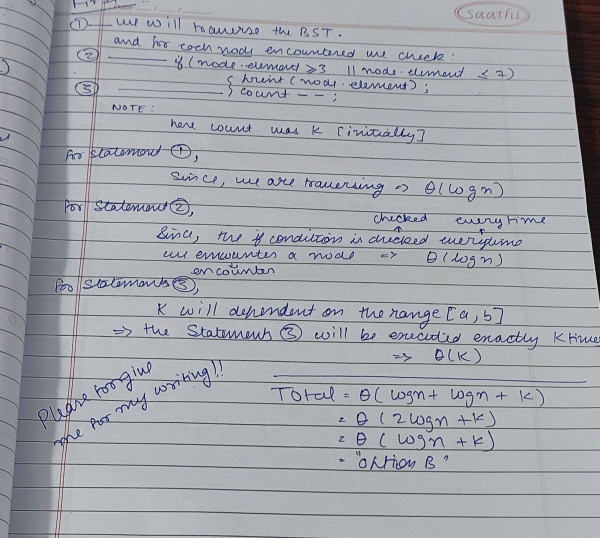 Saathi
① — we will traverse the BST.
and for each node encountered we check:
② — if (node.element ≥ 3 || node.element ≤ 7)
③ — { print(node.element);
} count --;
NOTE:
here count was K [initially]
for statement ①,
Since, we are traversing => θ(logn)
for statement ②,
checked everytime
Since, the if condition is checked everytime
we encounter a node => θ(logn)
encounter
for statements ③,
K will dependent on the range [a, b]
=> the Statement ③ will be executed exactly K times
=> θ(K)
Total = θ(logn + logn + K)
= θ(2logn + K)
= θ(logn + K)
= "option B"
Please forgive
me for my writing!!